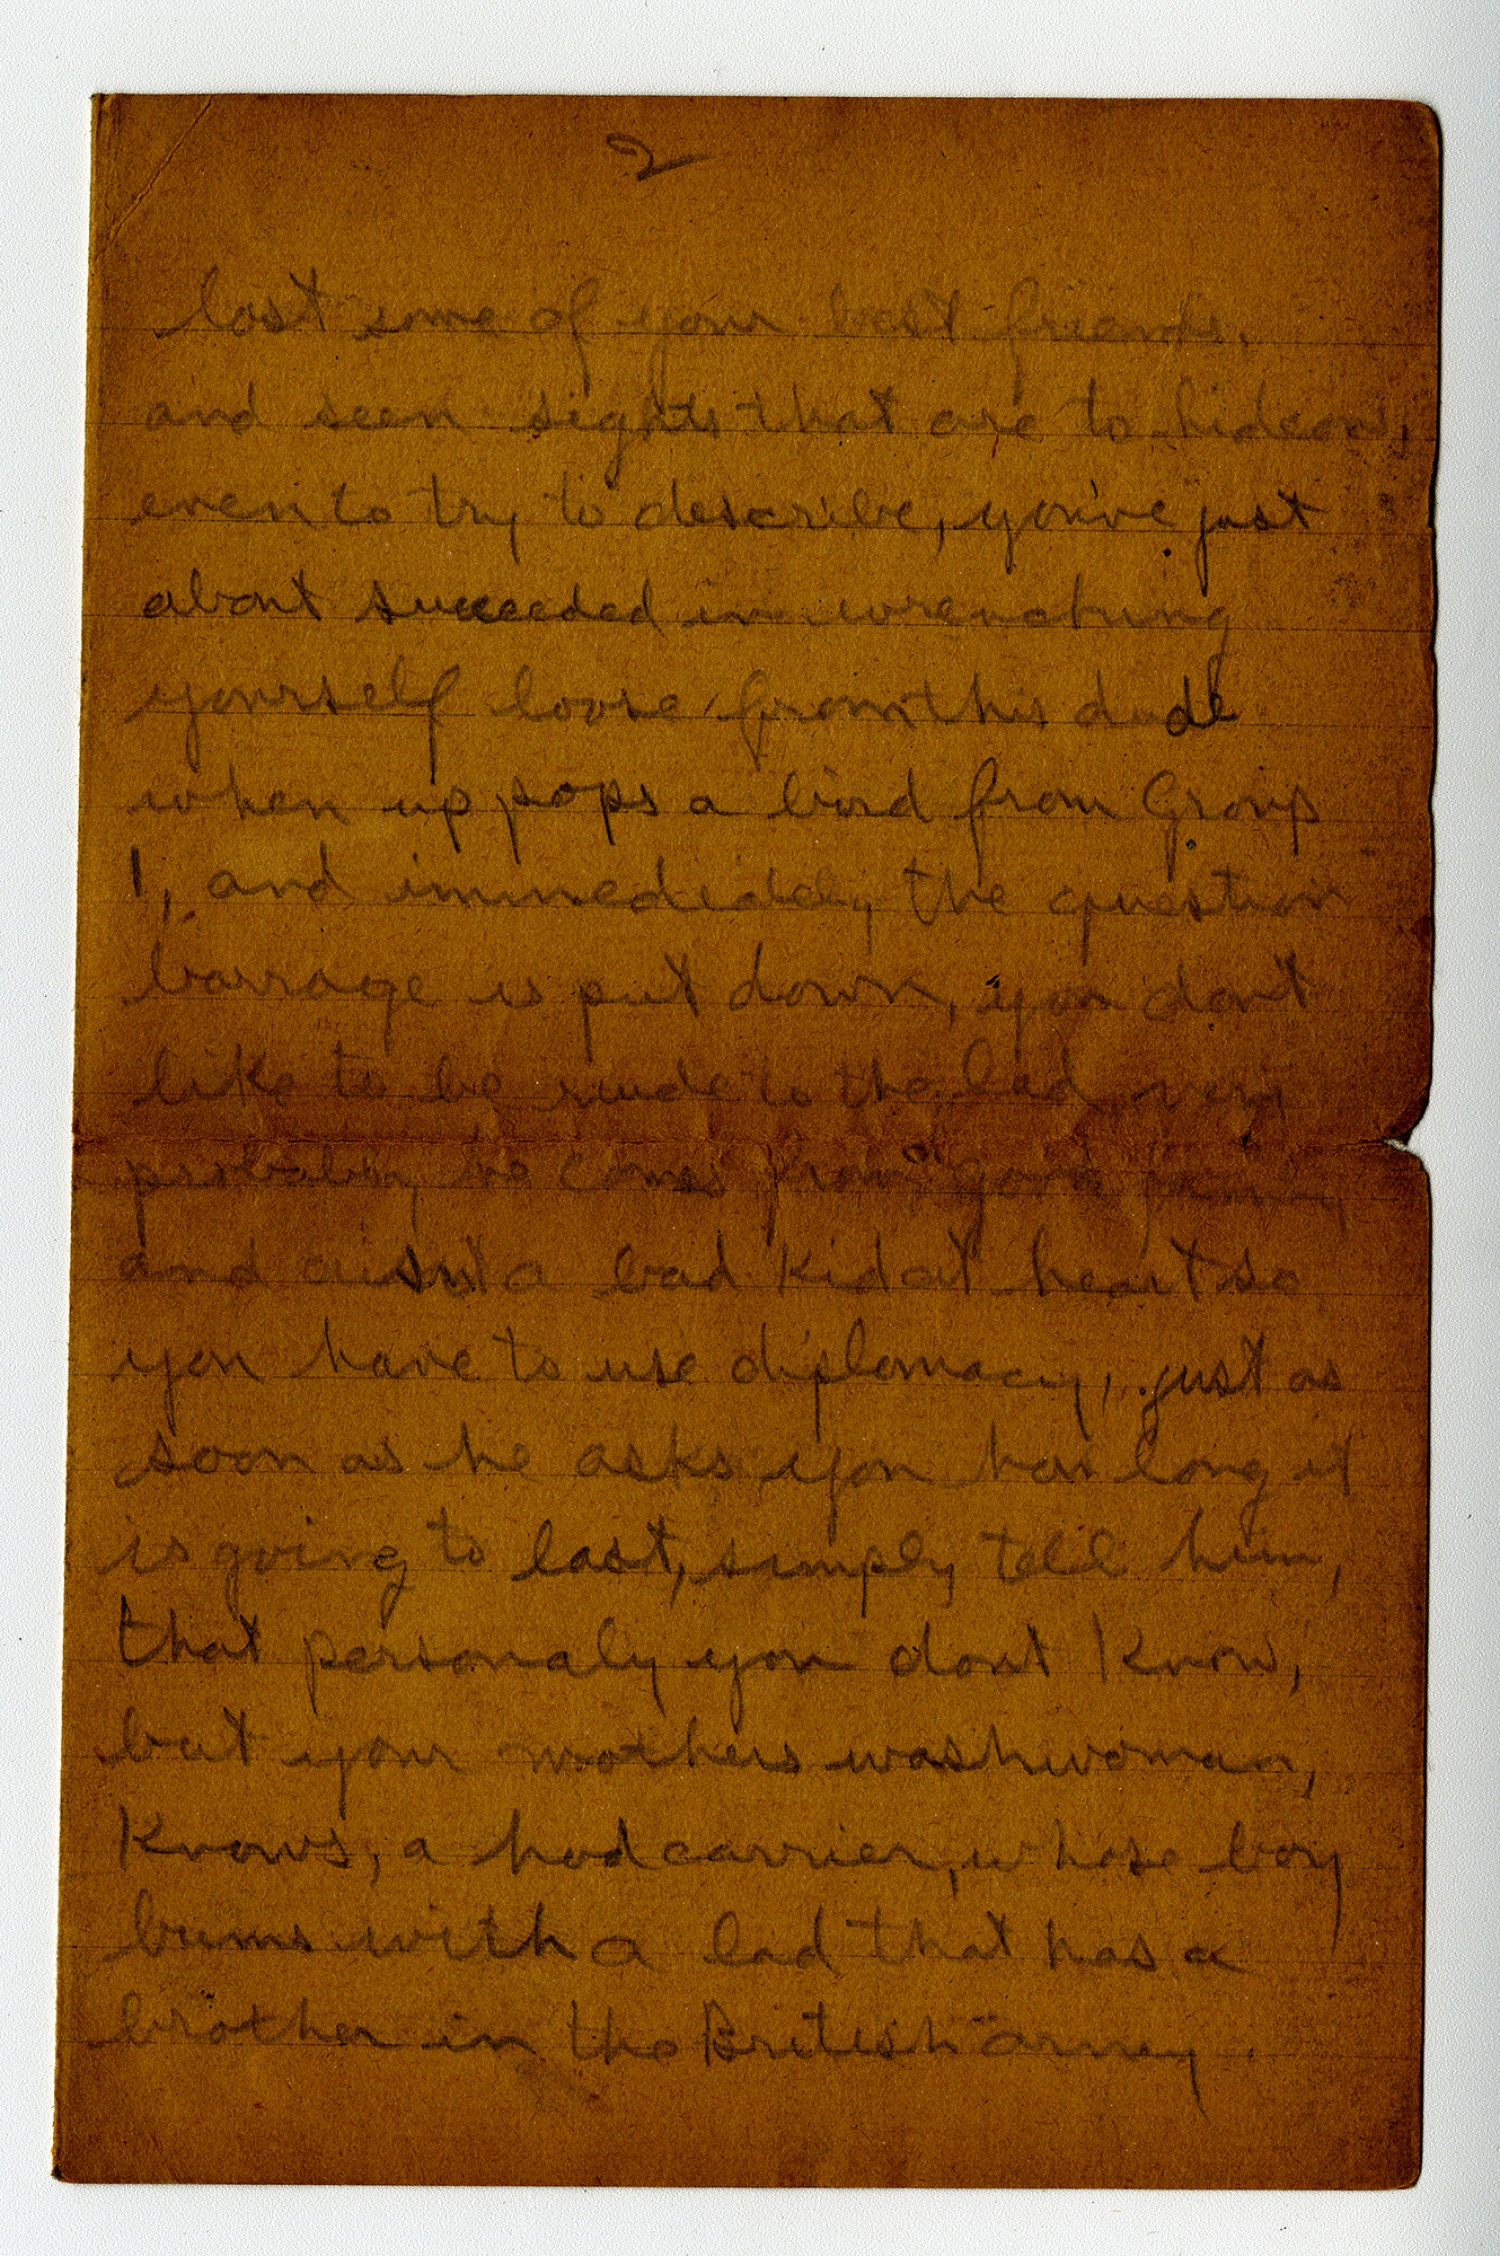 2
lost some of your best friends,
and seen sights that are to hideous,
even to try to describe, you've just
about succeeded in wrenching
yourself loose from this dude
when up pops a bird from Group
1, and immediately the question
barrage is put down, you dont
like to be rude to the lad very
probably he comes from a good family
and aisnt a bad kid at heart so
you have to use diplomacy, just as
soon as he asks you how long it
is going to last, simply tell him,
that personaly you dont know,
but your mothers washwoman,
Knows, a hod carrier, whose boy
bums with a lad that has a
brother in the British army.